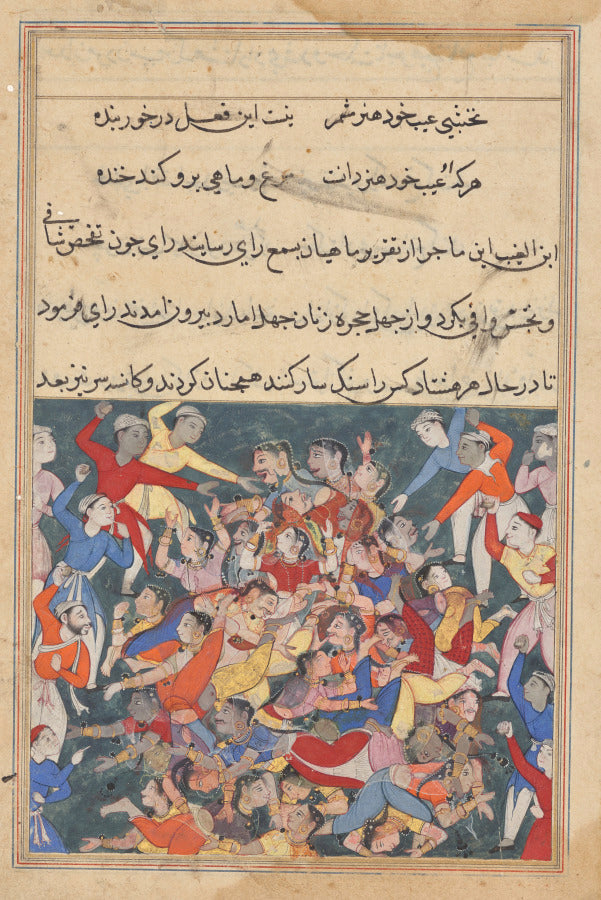 نخشبی عیب خود هنر شمر نیست این فعل در خور بنده
هر که او عیب خود هنر دانست مرغ و ماهی برو کند خنده
ابن الغیب این ماجرا از تقریر ماهیان بسمع رای رسانید رای چون تفحص شافی
و تجسس وافی بکرد و از چهل حجره زنان چهل امارد بیرون آمدند رای فرمود
تا در حال هر هشتاد کس را سنگسار کنند همچنان کردند و کامه سر نیز بعد